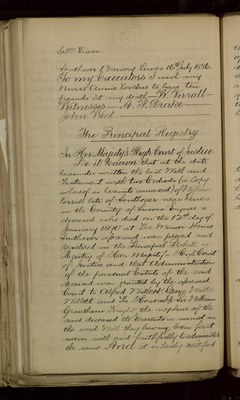 Southover Lewes 16th July 1886
To my Executors I wish my
Nurse Annie to have ten
pounds at my death W. Verrall
Witnesses A. P. Drake
John Weed
The Principal Registry
In Her Majesty's High Court of Justice
Be it Known that at the date
hereunder written the last Will and
Testament with two Codicils (a copy
whereof is hereunto annexed) of William
Verrall late of Southover near Lewes
in the County of Sussex Esquire
deceased who died on the 12th day of
January 1890 at The Manor House
Southover aforesaid was proved and
registered in the Principal Probate
Registry of Her Majesty's High Court
of Justice and that Administration
of the personal Estate of the said
deceased was granted by the aforesaid
Court to
and The Honorable Sir William
Grantham Knight the nephews of the
said deceased the Executors named in
the said Will they having been first
sworn well and faithfully to administer
the same And it is hereby certified